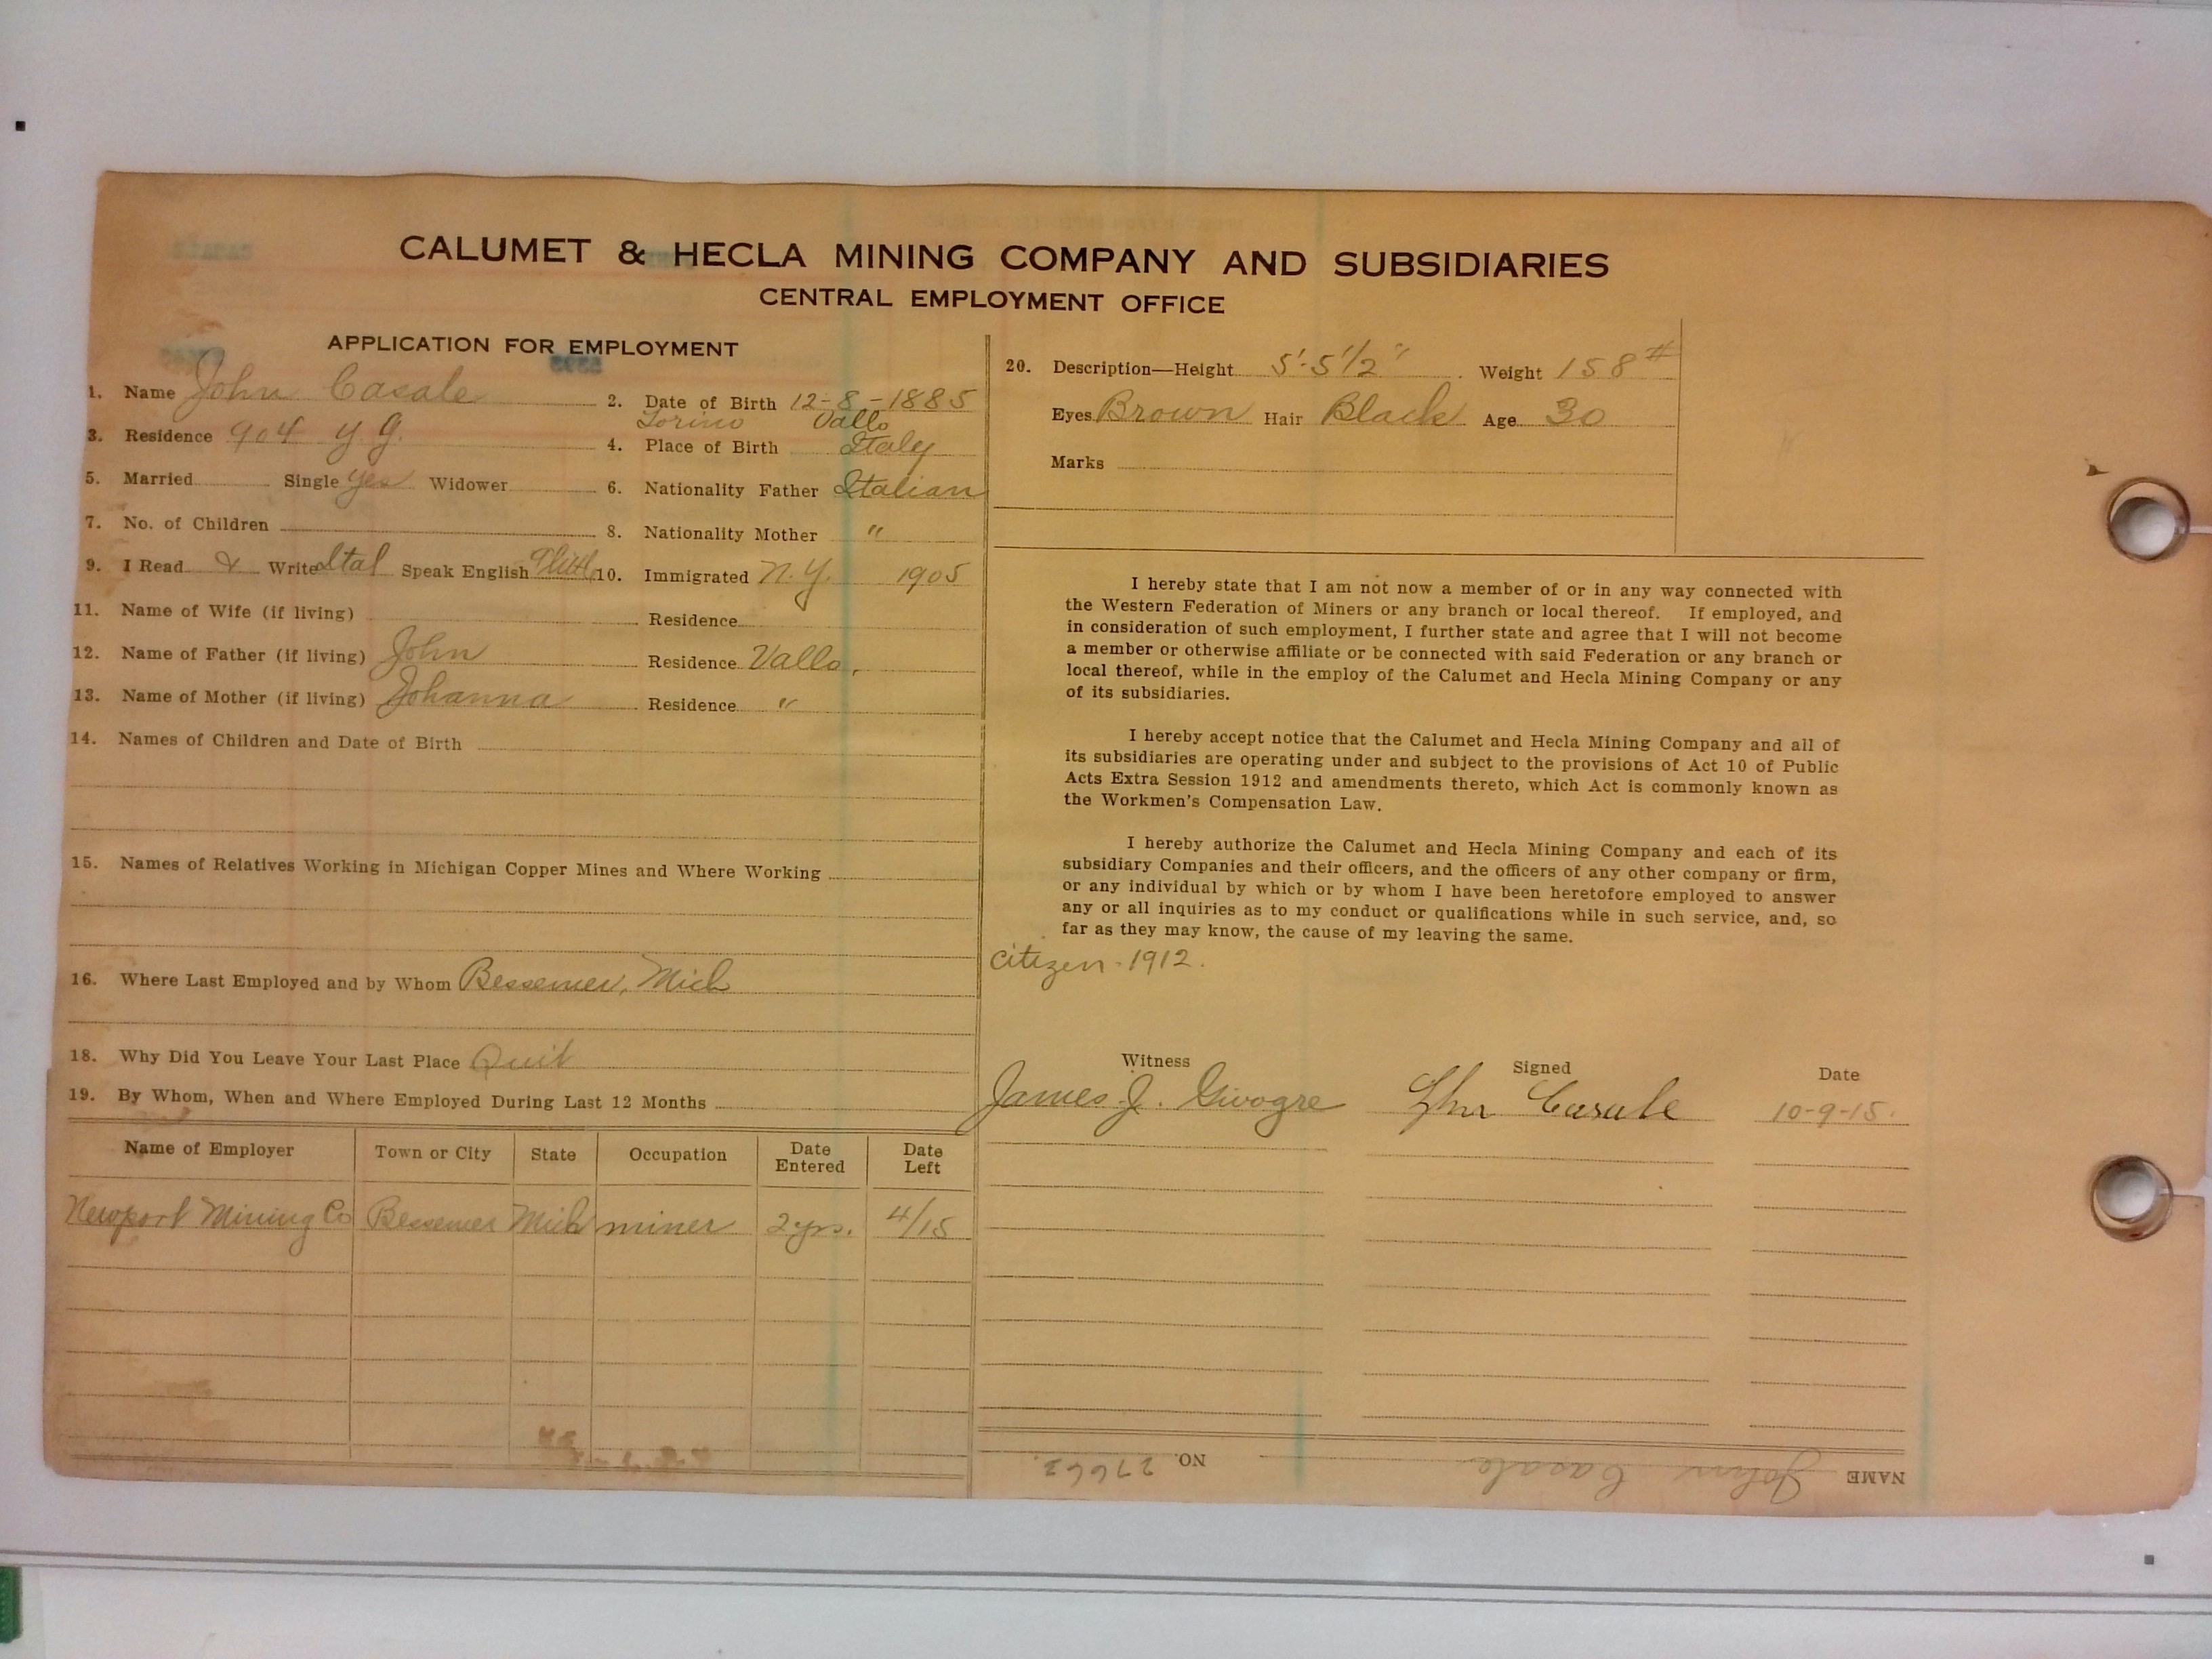 CALUMET & HECLA MINING COMPANY AND SUBSIDIARIES
CENTRAL EMPLOYMENT OFFICE
APPLICATION FOR EMPLOYMENT
1. Name John Casale
2. Date of Birth 12-8-1885
3. Residence 904 Y.G.
Torino Vallo
4. Place of Birth Italy
5. Married Single Yes Widower
6. Nationality Father Italian
7. No. of Children
8. Nationality Mother "
9. I Read & Write Ital Speak English
10. Immigrated N.Y. 1905
11. Name of Wife (if living) Residence
12. Name of Father (if living) John Residence Vallo,
13. Name of Mother (if living) Johanna Residence "
14. Names of Children and Date of Birth
15. Names of Relatives Working in Michigan Copper Mines and Where Working
16. Where Last Employed and by Whom Bessemer, Mich
18. Why Did You Leave Your Last Place Quit
19. By Whom, When and Where Employed During Last 12 Months
Name of Employer Town or City State Occupation Date Entered Date Left
Newport Mining Co Bessemer Mich miner 2 yrs. 4/15
20. Description—Height 5'-5 1/2" Weight 158#
Eyes Brown Hair Black Age 30
Marks
I hereby state that I am not now a member of or in any way connected with
the Western Federation of Miners or any branch or local thereof. If employed, and
in consideration of such employment, I further state and agree that I will not become
a member or otherwise affiliate or be connected with said Federation or any branch or
local thereof, while in the employ of the Calumet and Hecla Mining Company or any
of its subsidiaries.
I hereby accept notice that the Calumet and Hecla Mining Company and all of
its subsidiaries are operating under and subject to the provisions of Act 10 of Public
Acts Extra Session 1912 and amendments thereto, which Act is commonly known as
the Workmen's Compensation Law.
I hereby authorize the Calumet and Hecla Mining Company and each of its
subsidiary Companies and their officers, and the officers of any other company or firm,
or any individual by which or by whom I have been heretofore employed to answer
any or all inquiries as to my conduct or qualifications while in such service, and, so
far as they may know, the cause of my leaving the same.
citizen-1912.
Witness Signed Date
James J. John Casale 10-9-15.
NAME John Casale NO. 27662